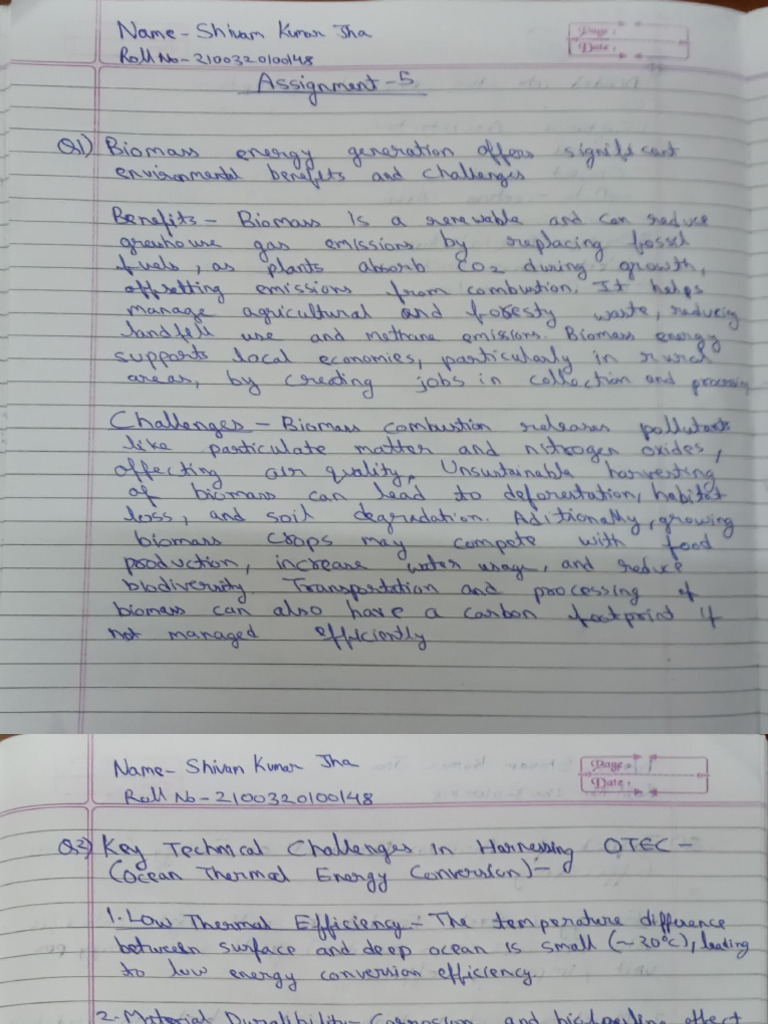 Name- Shivam Kumar Jha
Page:
Date:
Roll No-2100320100148
Assignment-5
Q1) Biomass energy generation offers significant
environmental benefits and challenges
Benefits - Biomass is a renewable and can reduce
greenhouse gas emissions by replacing fossil
fuels, as plants absorb CO2 during growth,
offsetting emissions from combustion. It helps
manage agricultural and foresty waste, reducing
landfill use and methane emissions. Biomass energy
supports local economies, particularly in rural
areas, by creating jobs in collection and processing
Challenges - Biomass combustion releases pollutants
like particulate matter and nitrogen oxides,
affecting air quality. Unsustainable harvesting
of biomass can lead to deforestation, habitat
loss, and soil degradation. Aditionally, growing
biomass crops may compete with food
production, increase water usage, and reduce
biodiversity. Transportation and processing of
biomass can also have a carbon footprint if
not managed efficiently
Name- Shivam Kumar Jha
Page:
Date:
Roll No-2100320100148
Key Technical Challenges in Harnessing OTEC -
(Ocean Thermal Energy Conversion)-
1. Low Thermal Efficiency - The temperature difference
between surface and deep ocean is small (~20°C), leading
to low energy conversion efficiency.
2. Material Durability- Corrosion and biofouling affect